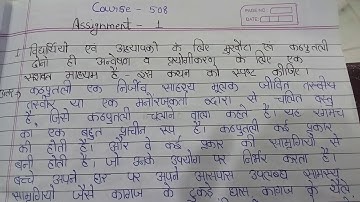 Course - 508
PAGE NO.
DATE
Assignment - 1
विद्यार्थियों एवं अध्यापकों के लिए मुखौटा एवं कठपुतली
दोनों ही अन्वेषण व प्रयोगीकरण के लिए एक
सशक्त माध्यम है - इस कथन को स्पष्ट कीजिए।
कठपुतली एक निर्जीव, सादृश्य मूलक जीवित
या एक मनोरंजनकर्ता द्वारा से चालित वस्तु
है, जिसे कठपुतली चलाने वाला कहते हैं। यह
का एक बहुत प्राचीन रूप है। कठपुतली कई प्रकार
की होती है। और वे कई प्रकार की सामग्रियों से
बनी होती है। जो उनके उपयोग पर निर्भर करता है।
बच्चे अपने घर पर अपने आसपास उपलब्ध समस्त
सामग्रियों जैसे कागज के टुकड़े घास कागज के थैले